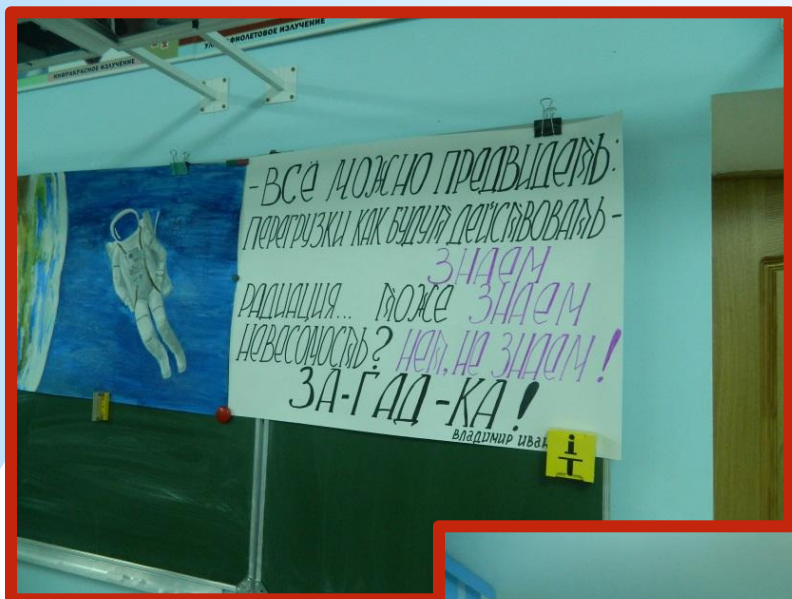 ИНФРАКРАСНОЕ ИЗЛУЧЕНИЕ
ИЗЛУЧЕНИЕ
-ВСЁ МОЖНО ПРЕДВИДЕТЬ:
ПЕРЕГРУЗКИ КАК БУДУТ ДЕЙСТВОВАТЬ -
ЗНАЕМ
РАДИАЦИЯ... ТОЖЕ ЗНАЕМ
НЕВЕСОМОСТЬ? НЕТ, НЕ ЗНАЕМ!
ЗА-ГАД-КА!
ВЛАДИМИР